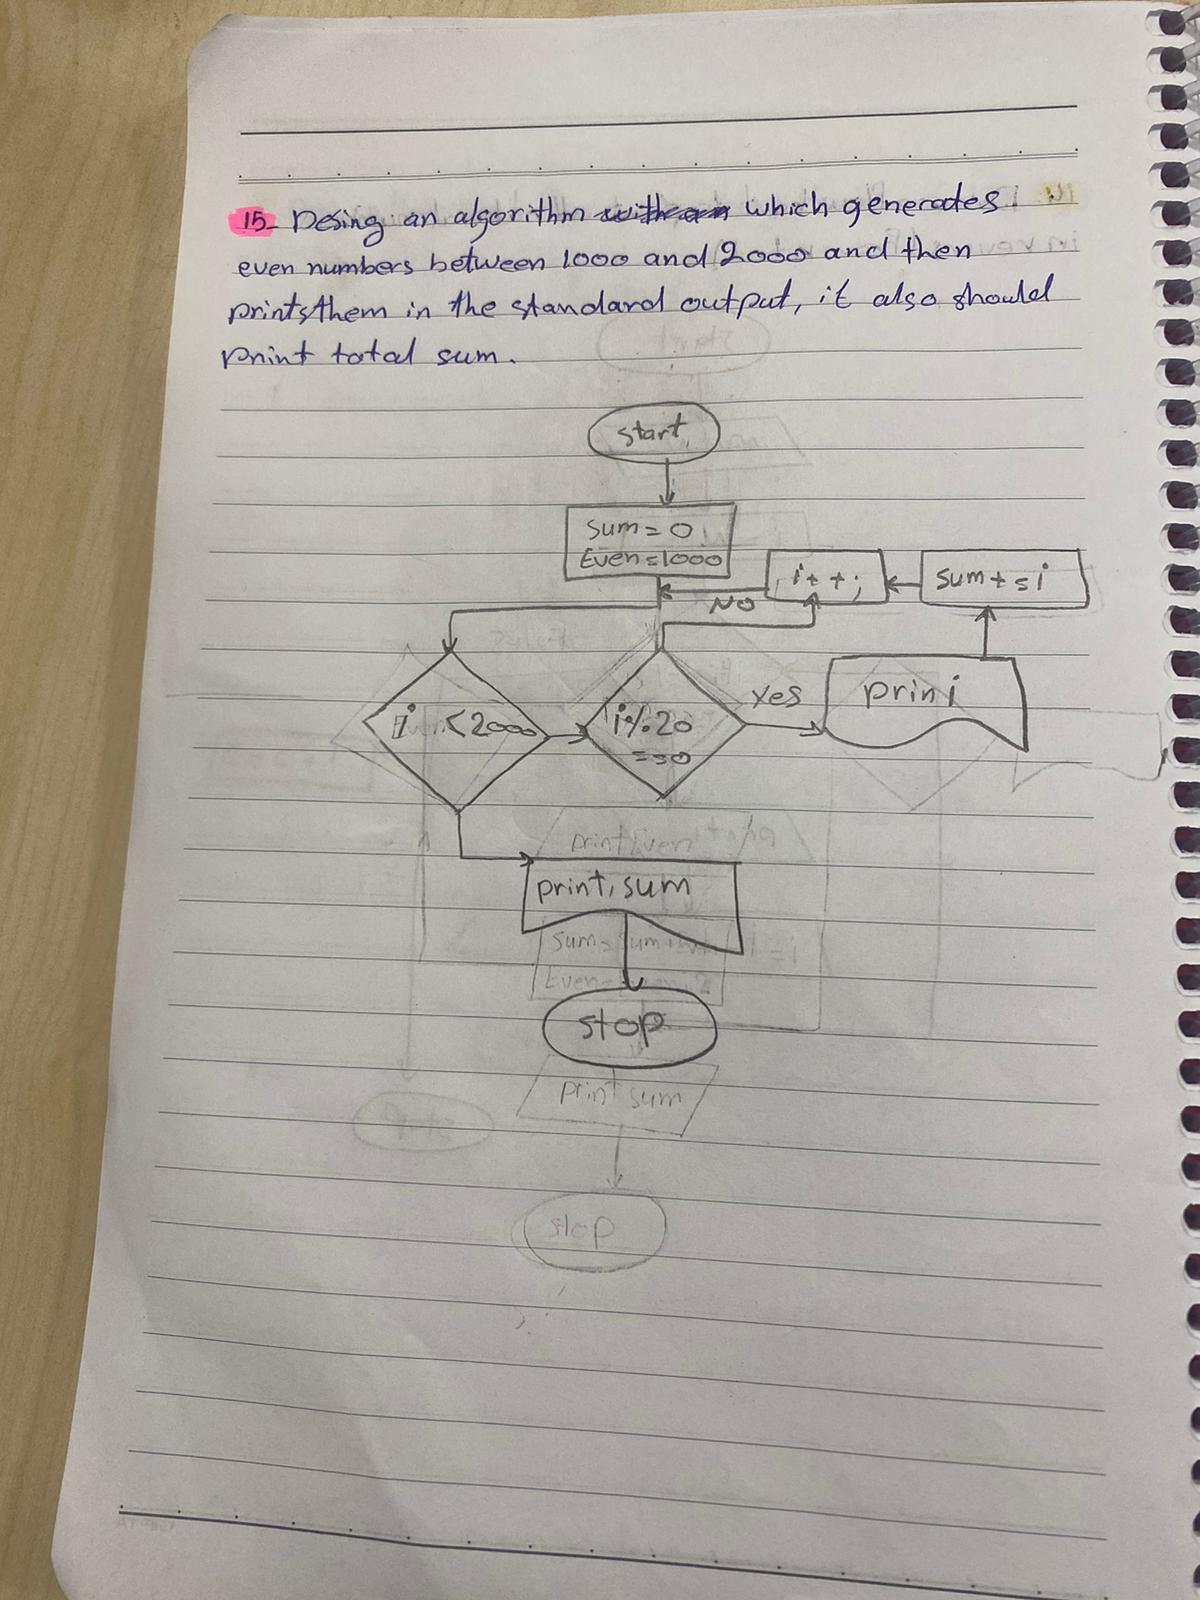 15- Desing an algorithm with an which generates
even numbers between 1000 and 2000 and then
prints them in the standard output, it also should
print total sum.
start
sum = 0
Even=1000
i++;
sum+=i
NO
i <2000
i%20
==0
Yes
prin i
print Even
print, sum
stop
print sum
stop